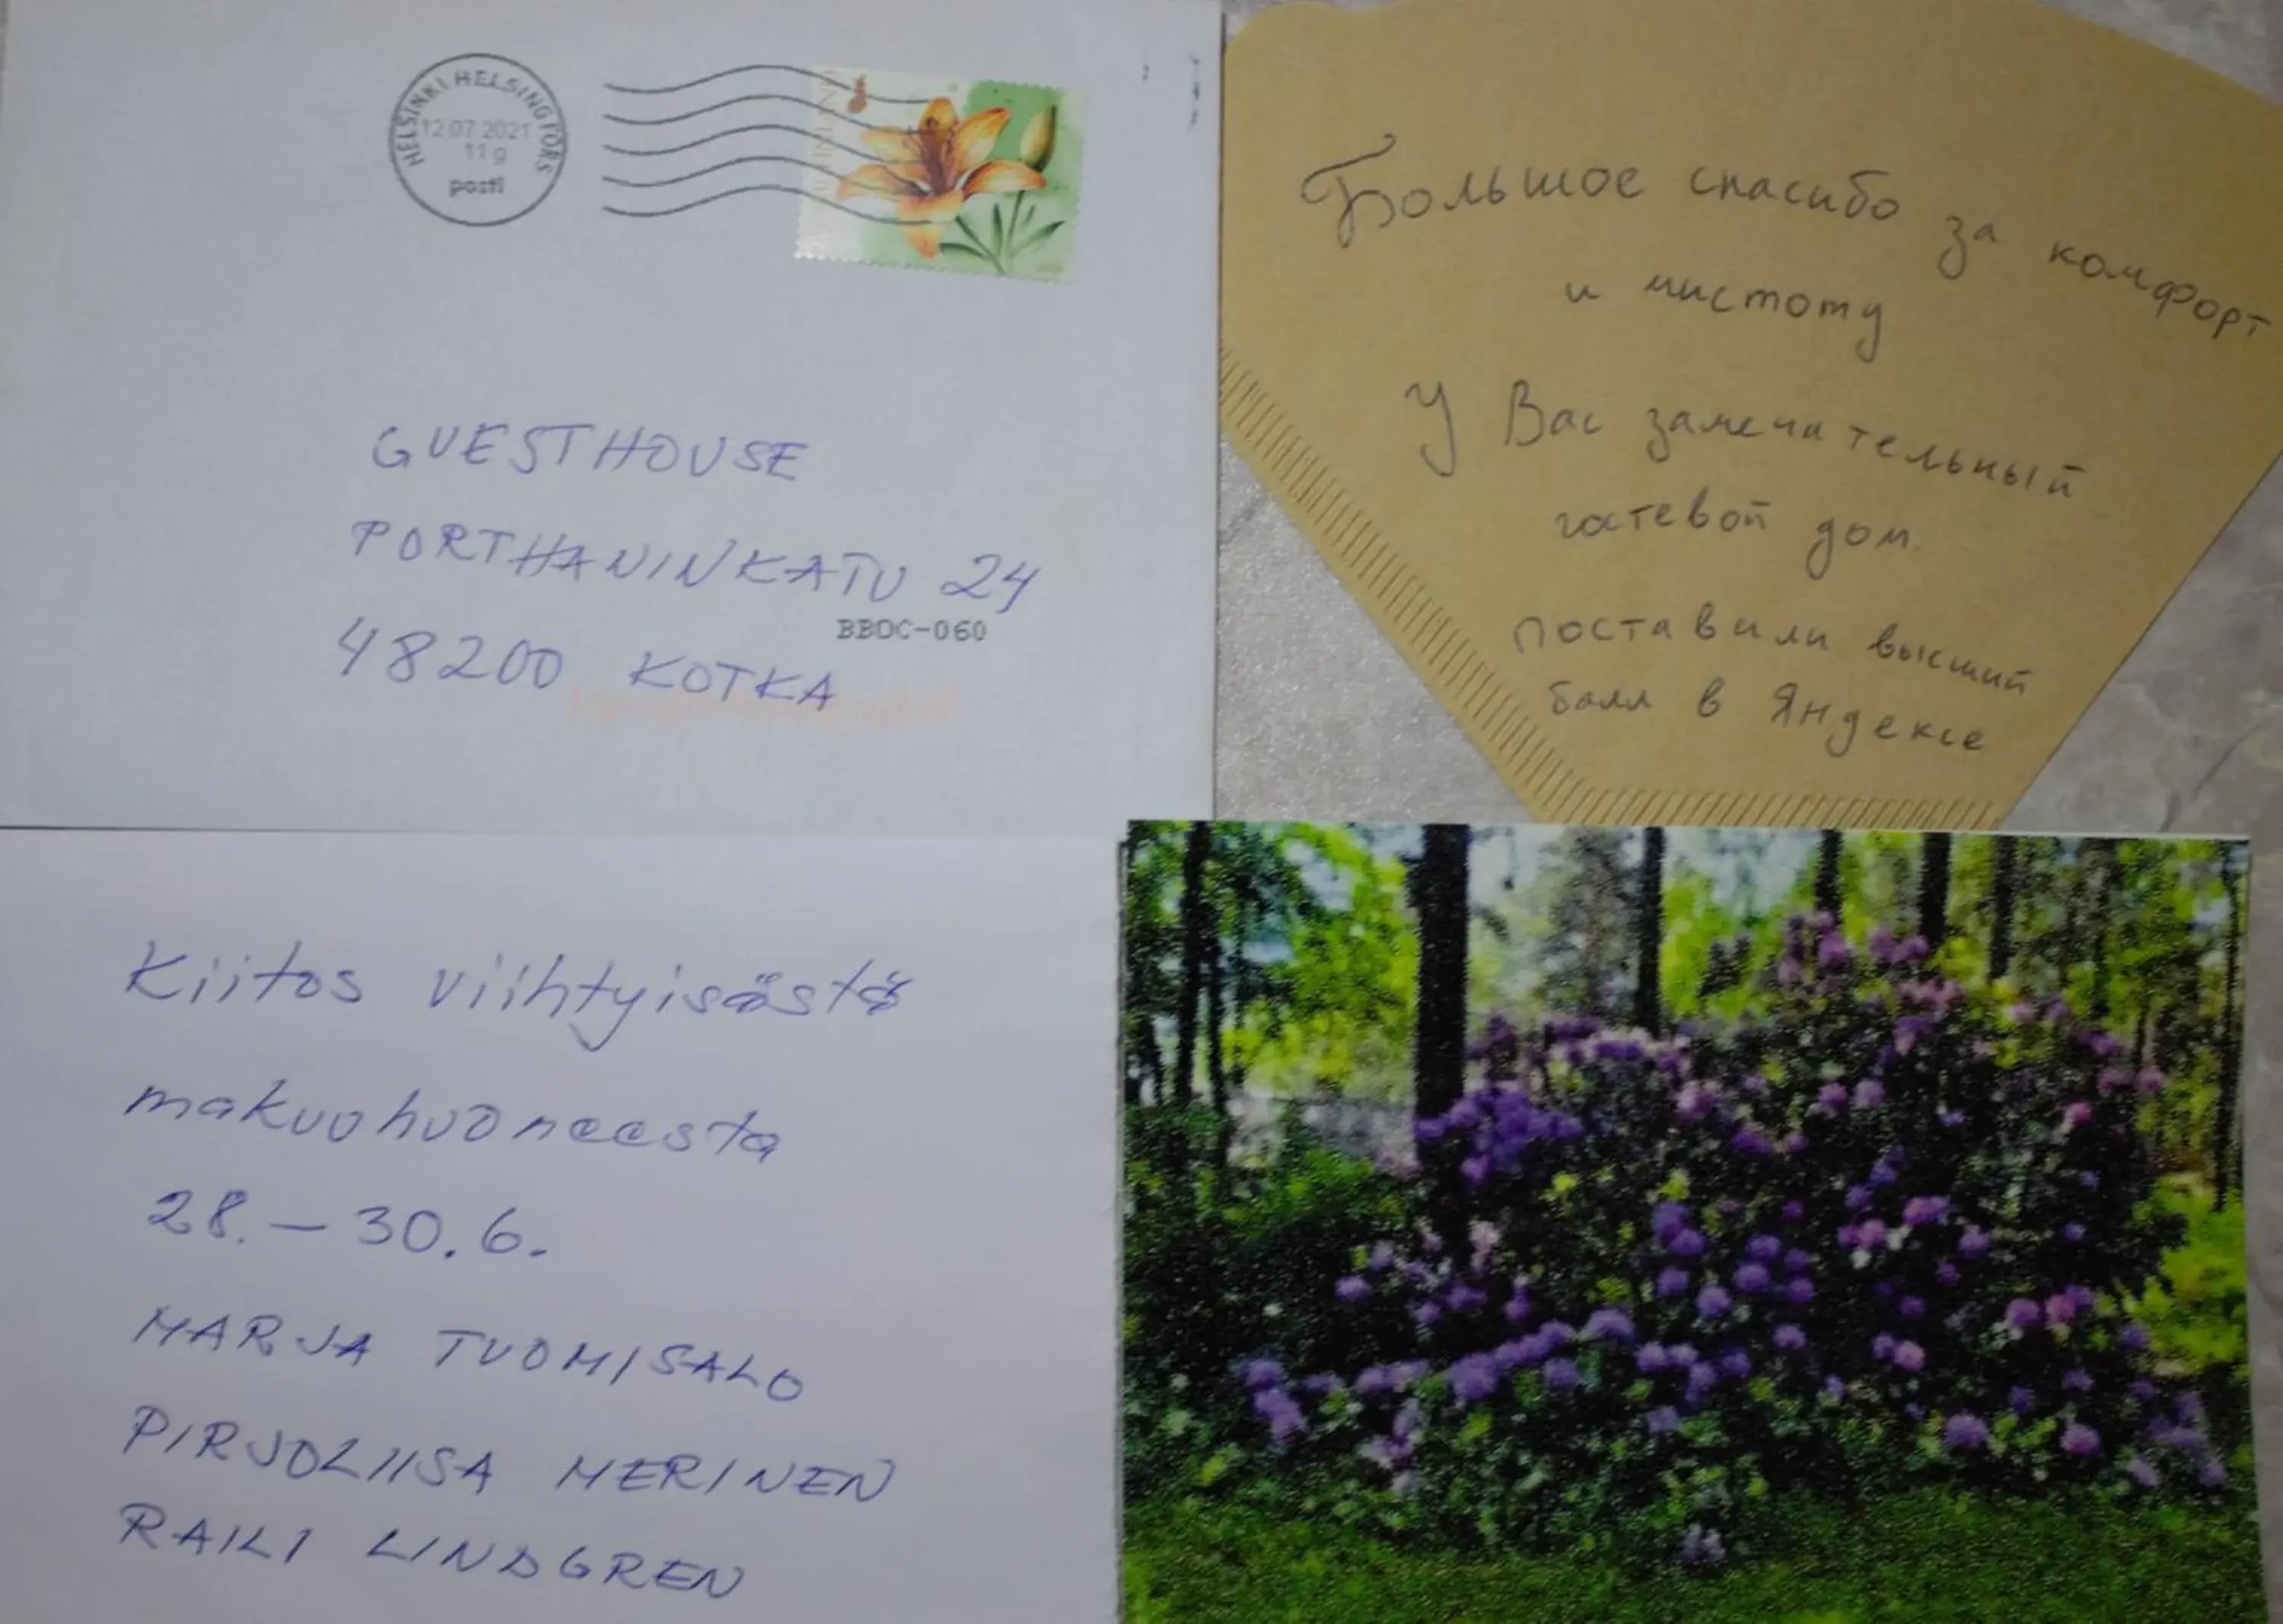 HELSINKI HELSINGFORS
12.07.2021
11 g
posti
GUESTHOUSE
PORTHANINKATU 24
BBDC-060
48200 KOTKA
Большое спасибо за комфорт
и чистоту
У Вас замечательный
гостевой дом.
поставили высший
балл в Яндексе
Kiitos viihtyisästä
makuuhuoneesta
28. – 30.6.
MARJA TUOMISALO
PIRJOLIISA MERINEN
RAILI LINDGREN